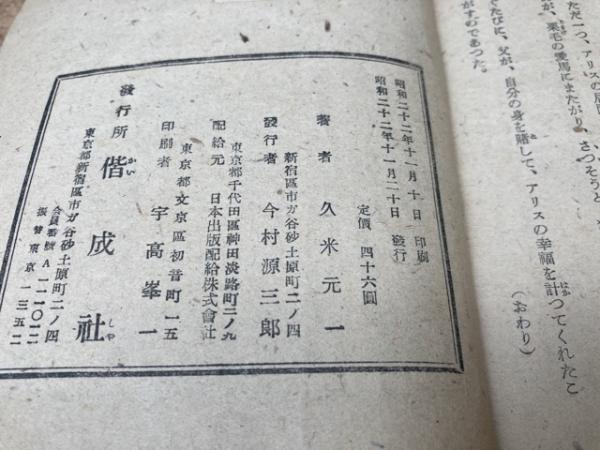 ただ一つ、アリスの
が、栗毛の愛馬にまたがり、さつそうと
でたびに、父が、自分の身を賭して、アリスの幸福を計つてくれたこ
がすのであつた。
（おわり）
昭和二十二年十一月十日 印刷
昭和二十二年十一月二十日 發行
定價 四十六圓
著者 久米元一
新宿區市ガ谷砂土原町二ノ四
發行者 今村源三郎
東京都千代田區神田淡路町二ノ九
配給元 日本出版配給株式會社
東京都文京區初音町一五
印刷者 宇高峯一
發行所 偕成社
かい しや
東京都新宿區市ガ谷砂土原町二ノ四
會員番號A一一一〇一二
振替東京一三五二